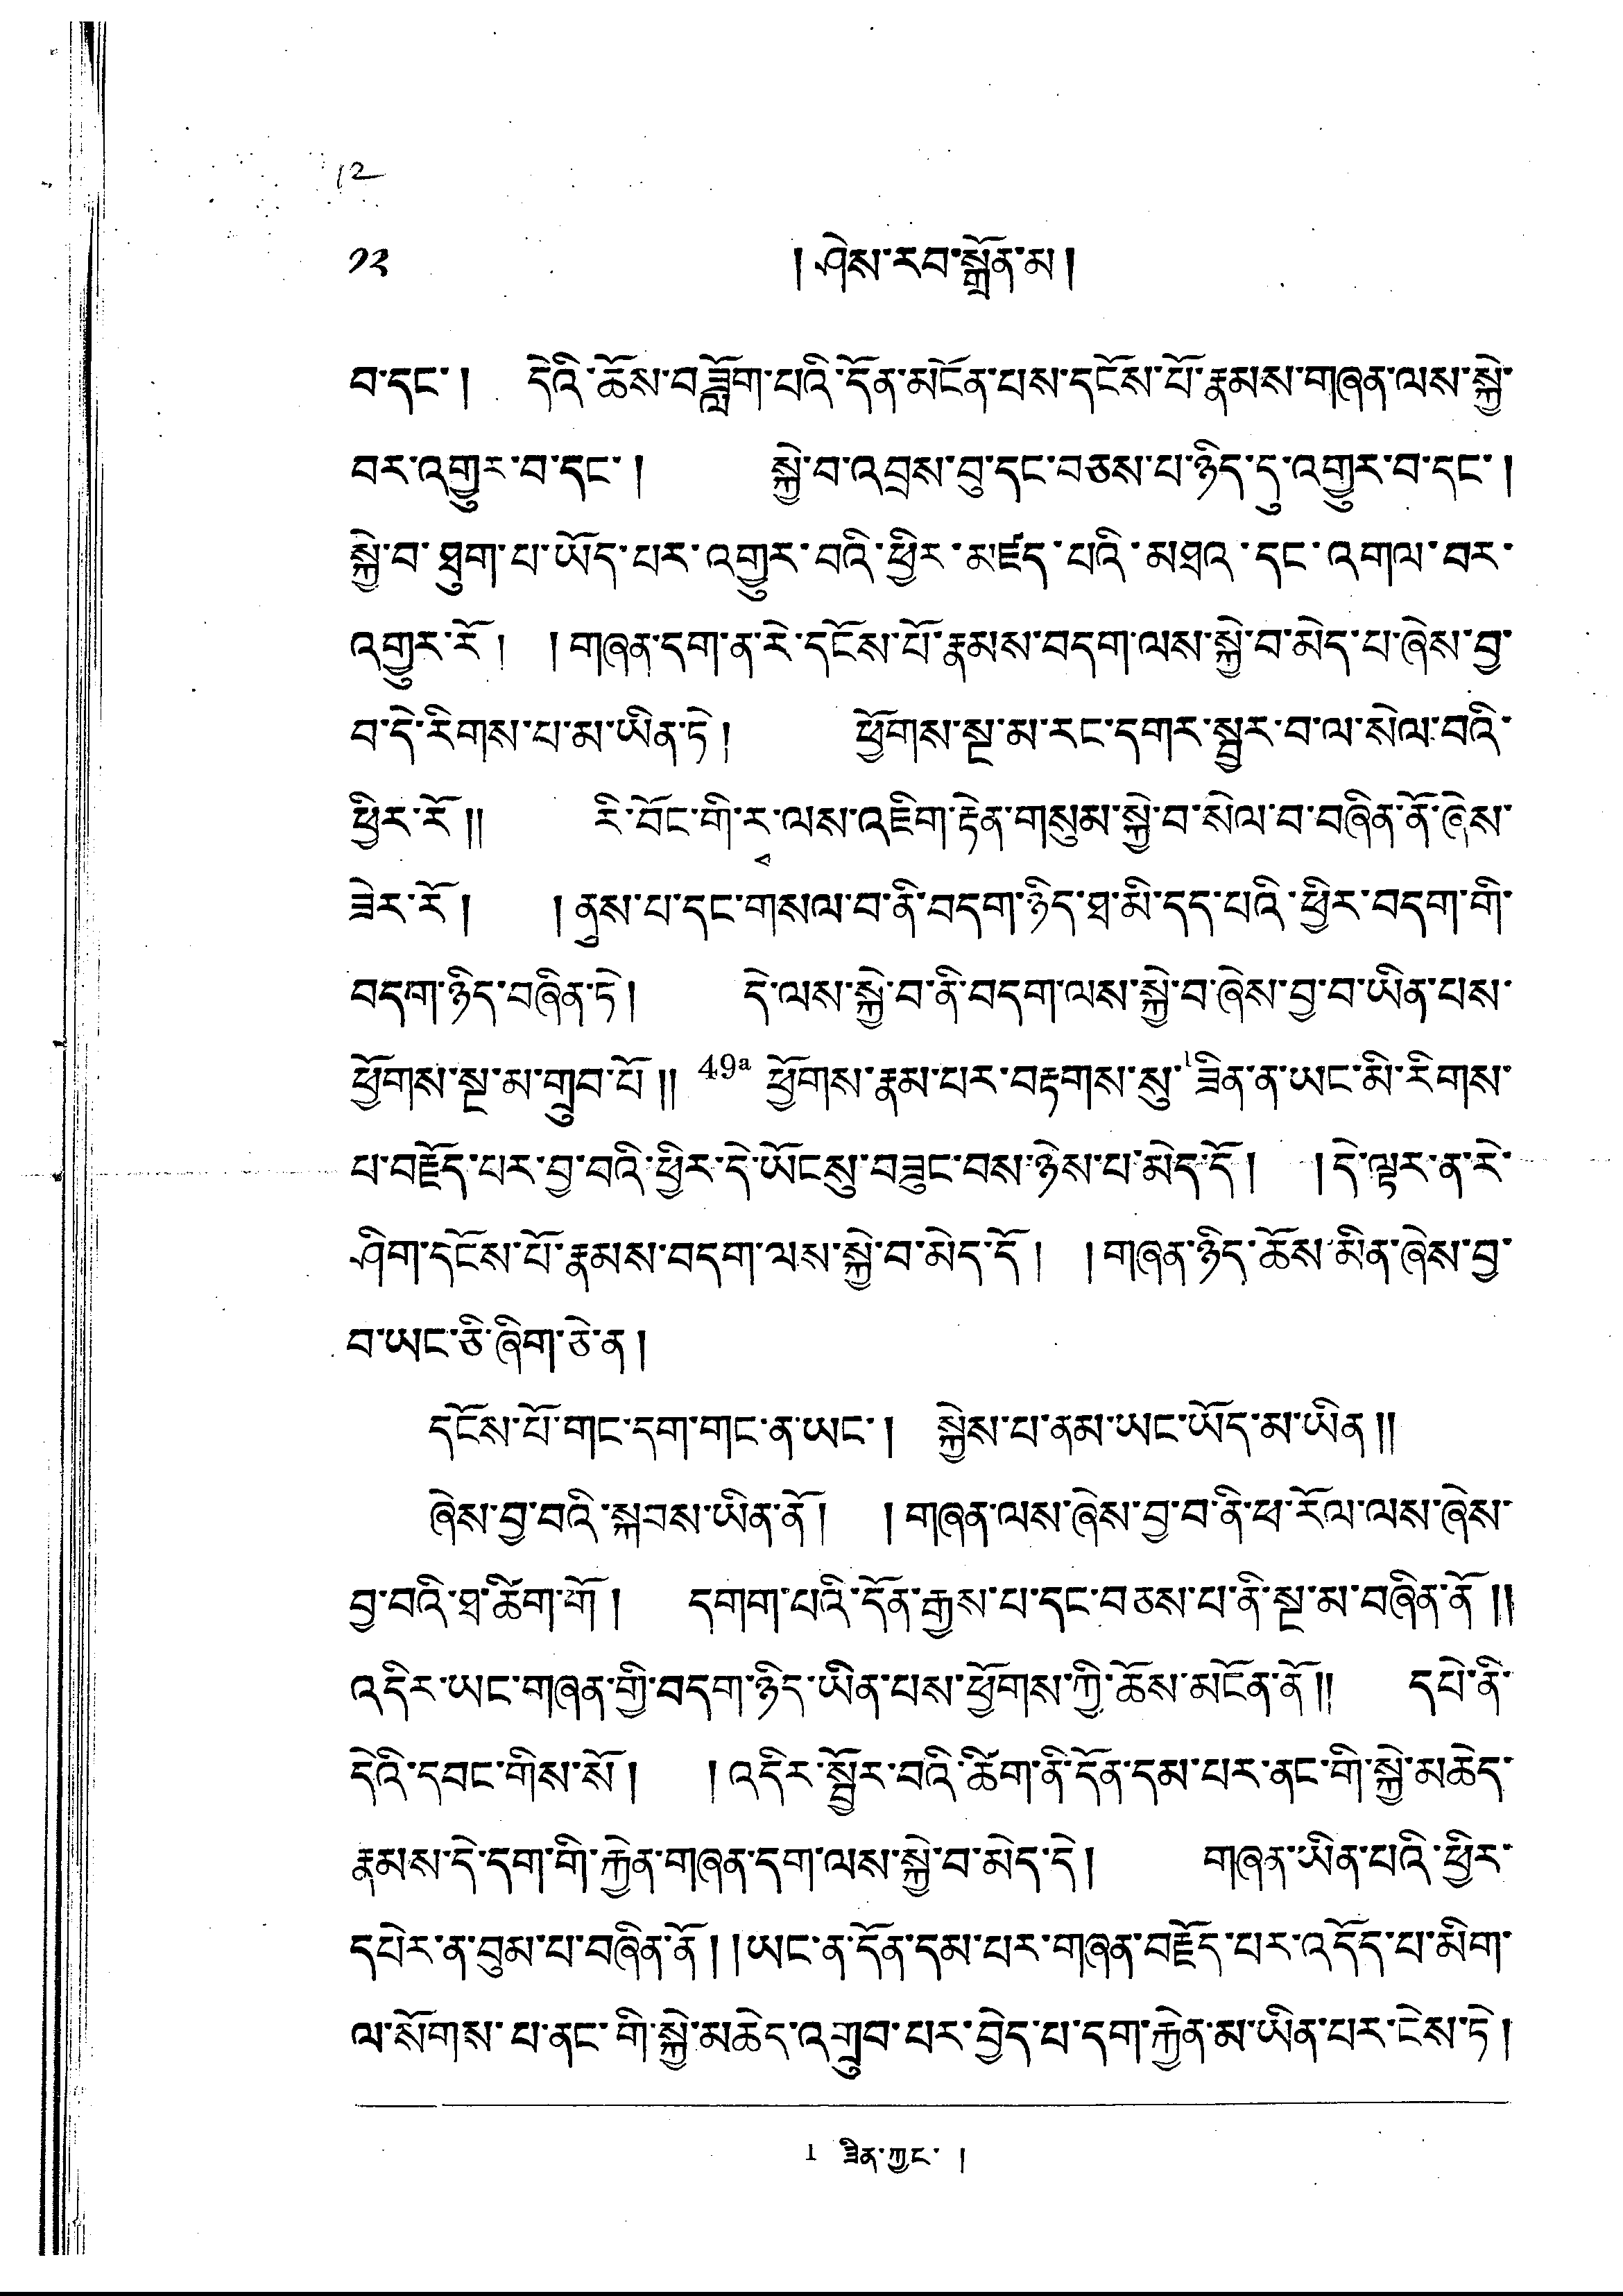 12
༡༢ །ཤེས་རབ་སྒྲོན་མ།
བ་དང་། དེའི་ཆོས་བཟློག་པའི་དོན་མངོན་པས་དངོས་པོ་རྣམས་གཞན་ལས་སྐྱེ་
བར་འགྱུར་བ་དང་། སྐྱེ་བ་འབྲས་བུ་དང་བཅས་པ་ཉིད་དུ་འགྱུར་བ་དང་།
སྐྱེ་བ་ཐུག་པ་ཡོད་པར་འགྱུར་བའི་ཕྱིར་མཛད་པའི་མཐའ་དང་འགལ་བར་
འགྱུར་རོ། །གཞན་དག་ན་རེ་དངོས་པོ་རྣམས་བདག་ལས་སྐྱེ་བ་མེད་པ་ཞེས་བྱ་
བ་དེ་རིགས་པ་མ་ཡིན་ཏེ། ཕྱོགས་སྔ་མ་རང་དགར་སྦྱར་བ་ལ་སེལ་བའི་
ཕྱིར་རོ།། རི་བོང་གི་རྭ་ལས་འཇིག་རྟེན་གསུམ་སྐྱེ་བ་སེལ་བ་བཞིན་ནོ་ཞེས་
ཟེར་རོ། །ནུས་པ་དང་གསལ་བ་ནི་བདག་ཉིད་ཐ་མི་དད་པའི་ཕྱིར་བདག་གི་
བདག་ཉིད་བཞིན་ཏེ། དེ་ལས་སྐྱེ་བ་ནི་བདག་ལས་སྐྱེ་བ་ཞེས་བྱ་བ་ཡིན་པས་
ཕྱོགས་སྔ་མ་གྲུབ་པོ།། 49a ཕྱོགས་རྣམ་པར་བརྟགས་སུ་1ཟིན་ན་ཡང་མི་རིགས་
པ་བརྗོད་པར་བྱ་བའི་ཕྱིར་དེ་ཡོངསུ་བཟུང་བས་ཉེས་པ་མེད་དོ། །དེ་ལྟར་ན་རེ་
ཤིག་དངོས་པོ་རྣམས་བདག་ལས་སྐྱེ་བ་མེད་དོ། །གཞན་ཉིད་ཆོས་མིན་ཞེས་བྱ་
བ་ཡང་ཅི་ཞིག་ཅེ་ན།
དངོས་པོ་གང་དག་གང་ན་ཡང་། སྐྱེས་པ་ནམ་ཡང་ཡོད་མ་ཡིན།།
ཞེས་བྱ་བའི་སྐབས་ཡིན་ནོ། །གཞན་ལས་ཞེས་བྱ་བ་ནི་ཕ་རོལ་ལས་ཞེས་
བྱ་བའི་ཐ་ཚིག་གོ། དགག་པའི་དོན་རྒྱས་པ་དང་བཅས་པ་ནི་སྔ་མ་བཞིན་ནོ།།
འདིར་ཡང་གཞན་གྱི་བདག་ཉིད་ཡིན་པས་ཕྱོགས་ཀྱི་ཆོས་མངོན་ནོ།། དཔེ་ནི་
དེའི་དབང་གིས་སོ། །འདིར་སྦྱོར་བའི་ཚིག་ནི་དོན་དམ་པར་ནང་གི་སྐྱེ་མཆེད་
རྣམས་དེ་དག་གི་རྐྱེན་གཞན་དག་ལས་སྐྱེ་བ་མེད་དེ། གཞན་ཡིན་པའི་ཕྱིར་
དཔེར་ན་བུམ་པ་བཞིན་ནོ། །ཡང་ན་དོན་དམ་པར་གཞན་བརྗོད་པར་འདོད་པ་མིག་
ལ་སོགས་པ་ནང་གི་སྐྱེ་མཆེད་འགྲུབ་པར་བྱེད་པ་དག་རྐྱེན་མ་ཡིན་པར་ངེས་ཏེ།
1 ཟིན་ཀྱང་ །